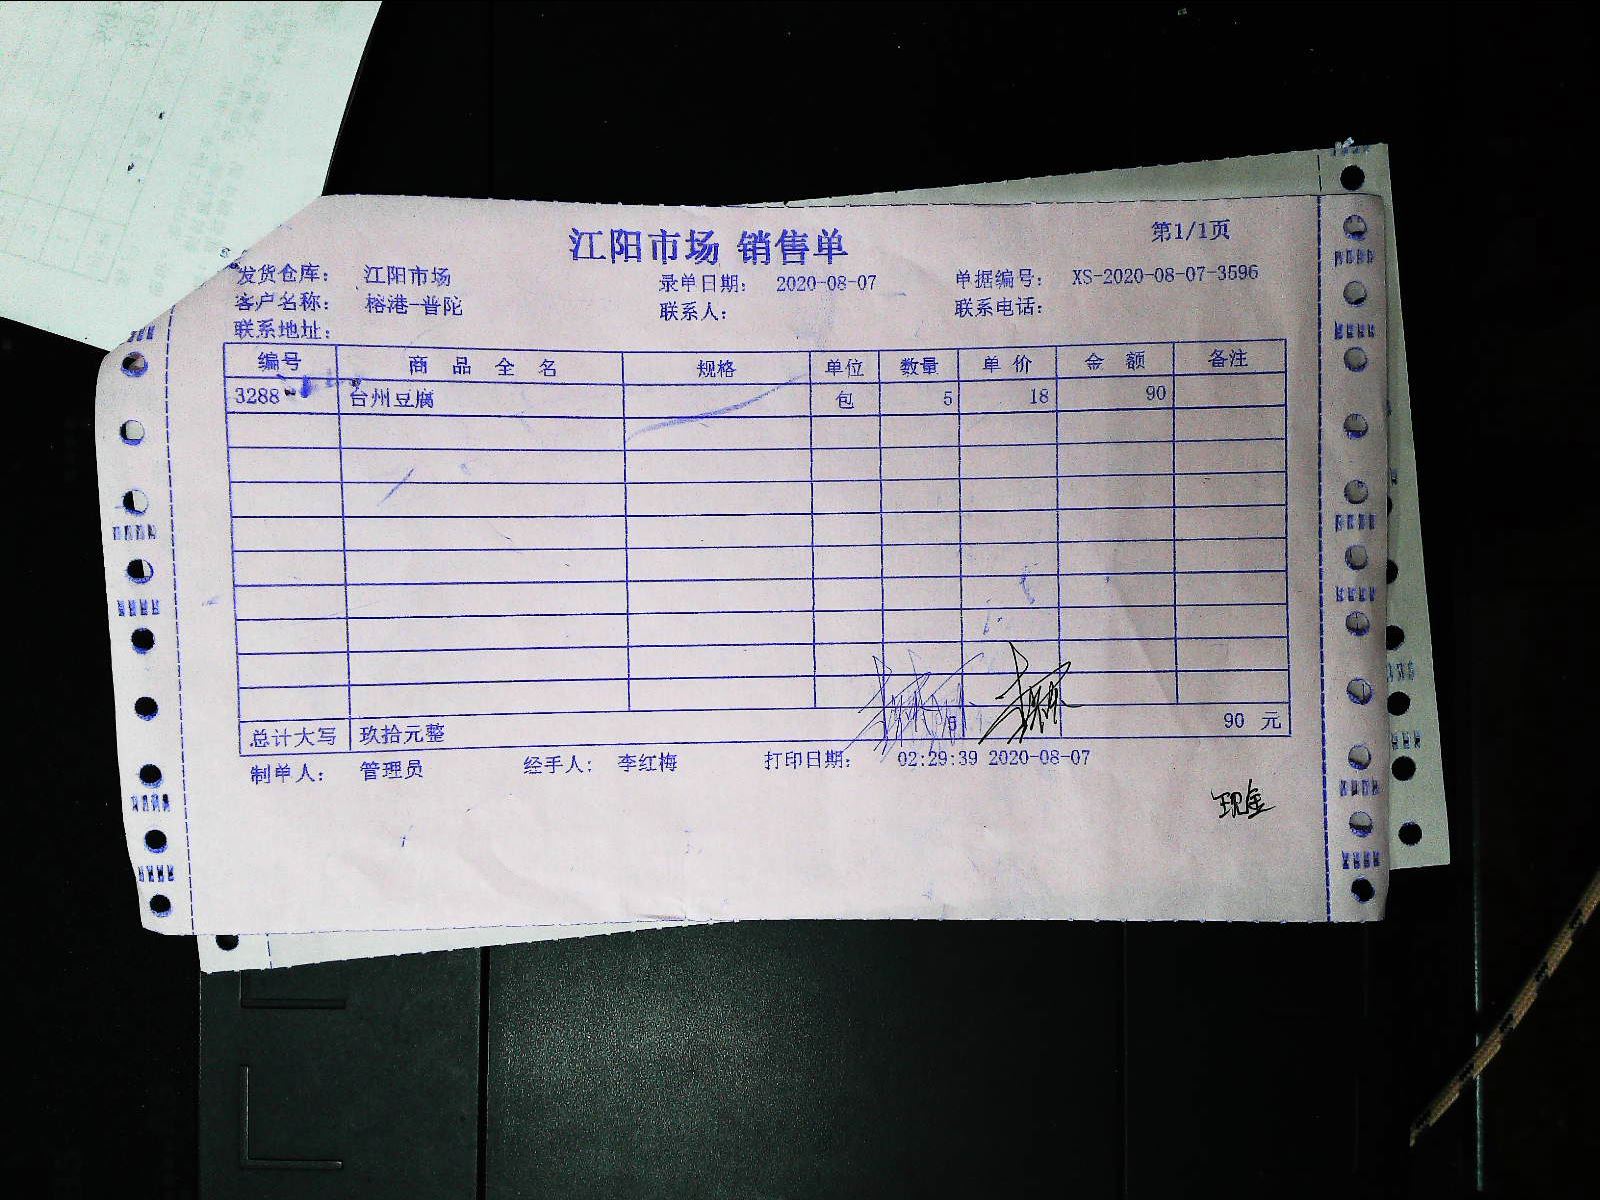 江阳市场 销售单
第1/1页
发货仓库： 江阳市场 录单日期： 2020-08-07 单据编号： XS-2020-08-07-3596
客户名称： 榕港-普陀 联系人： 联系电话：
联系地址：
编号 商品全名 规格 单位 数量 单价 金额 备注
3288 台州豆腐 包 5 18 90
总计大写 玖拾元整 90 元
制单人： 管理员 经手人： 李红梅 打印日期： 02:29:39 2020-08-07
现金